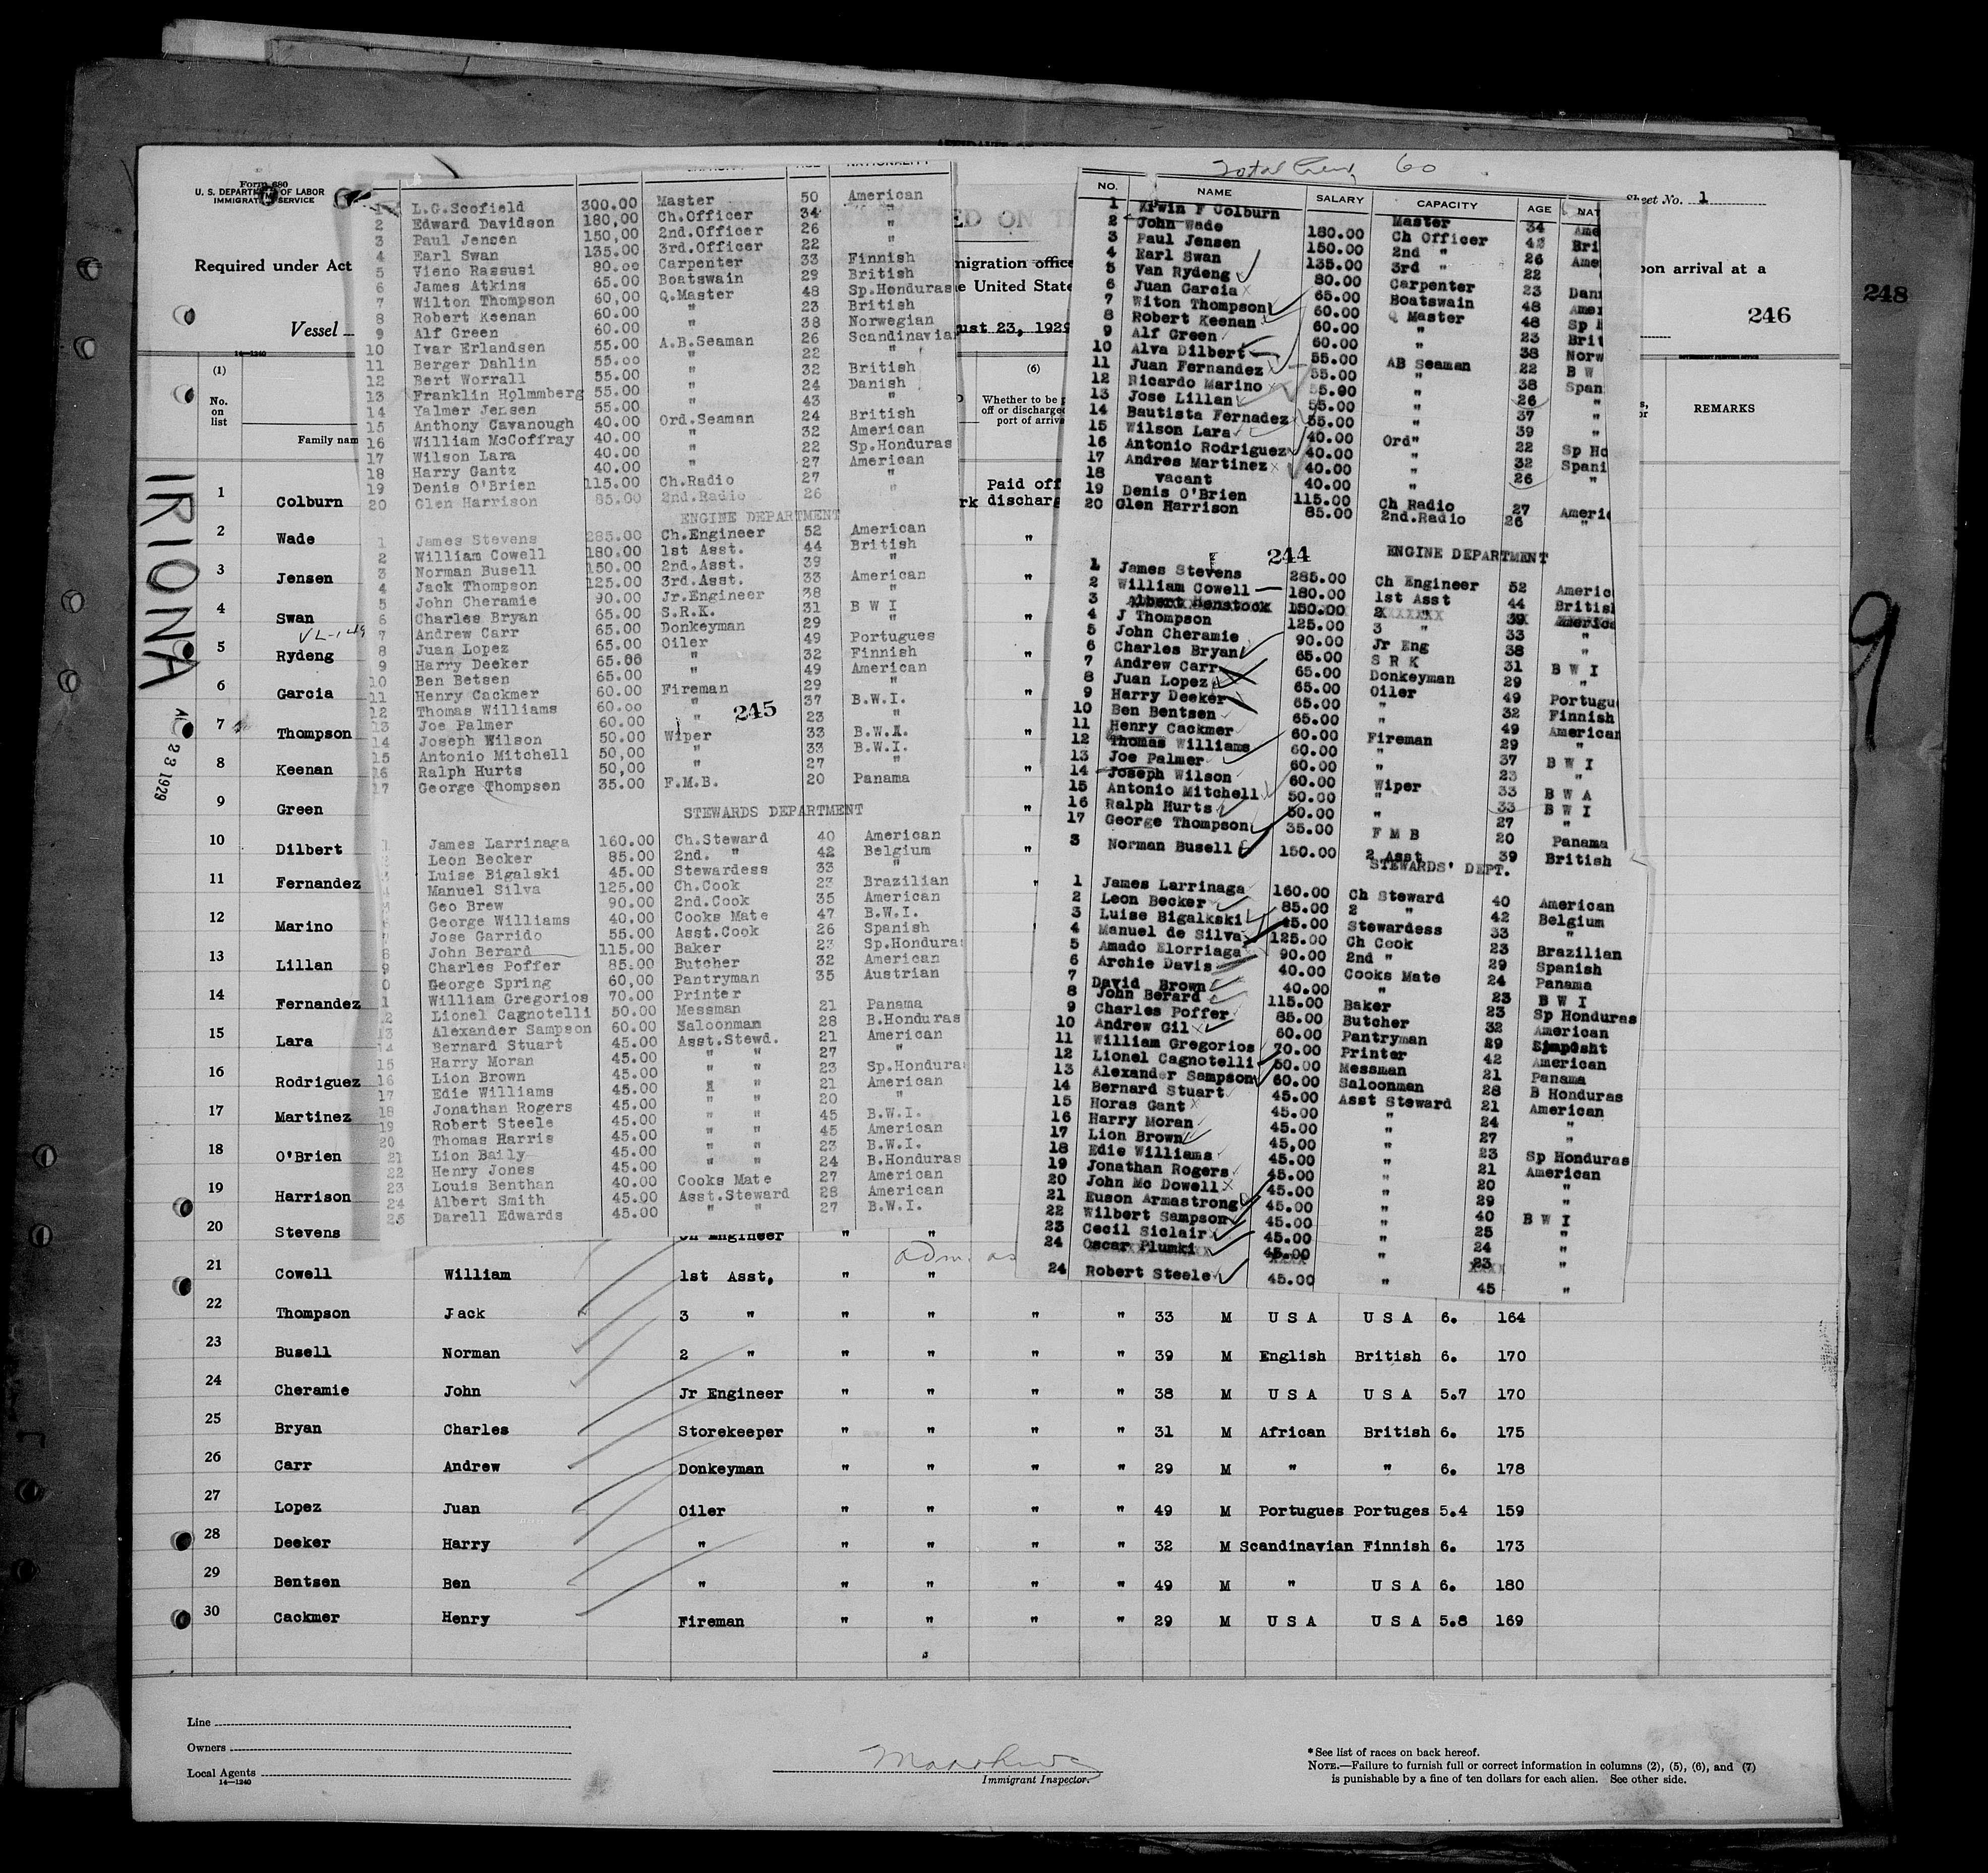 Form 680
U. S. DEPARTMENT OF LABOR
IMMIGRATION SERVICE
Required under Act
Vessel
14—1240
(1)
No.
on
list
Family nam
IRIONA
23 1929
NATIONALITY
1 L.G.Scofield 300.00 Master 50 American
2 Edward Davidson 180,00 Ch.Officer 34 "
3 Paul Jensen 150,00 2nd.Officer 26 "
4 Earl Swan 135.00 3rd.Officer 22 "
5 Vieno Rassusi 80.00 Carpenter 33 Finnish
6 James Atkins 65.00 Boatswain 29 British
7 Wilton Thompson 60,00 Q.Master 48 Sp.Honduras
8 Robert Keenan 60.00 " 23 British
9 Alf Green 60.00 " 38 Norwegian
10 Ivar Erlandsen 55.00 A.B.Seaman 26 Scandinavian
11 Berger Dahlin 55.00 " 22 "
12 Bert Worrall 55.00 " 32 British
13 Franklin Holmmberg 55.00 " 24 Danish
14 Yalmer Jensen 55.00 " 43 "
15 Anthony Cavanough 40.00 Ord.Seaman 24 British
16 William McCoffray 40.00 " 32 American
17 Wilson Lara 40.00 " 22 Sp.Honduras
18 Harry Gantz 40.00 " 27 American
19 Denis O'Brien 115.00 Ch.Radio 27 "
20 Glen Harrison 85.00 2nd.Radio 26 "
ENGINE DEPARTMENT
1 James Stevens 285.00 Ch.Engineer 52 American
2 William Cowell 180.00 1st Asst. 44 British
3 Norman Busell 150.00 2nd.Asst. 39 "
4 Jack Thompson 125.00 3rd.Asst. 33 American
5 John Cheramie 90.00 Jr.Engineer 38 "
6 Charles Bryan 65.00 S.R.K. 31 B W I
7 Andrew Carr 65.00 Donkeyman 29 "
8 Juan Lopez 65.00 Oiler 49 Portugues
9 Harry Deeker 65.00 " 32 Finnish
10 Ben Betsen 65.00 " 49 American
11 Henry Cackmer 60.00 Fireman 29 "
12 Thomas Williams 60.00 " 37 B.W.I.
13 Joe Palmer 60.00 " 23 "
14 Joseph Wilson 50.00 Wiper 33 B.W.A.
15 Antonio Mitchell 50,00 " 33 B.W.I.
16 Ralph Hurts 50,00 " 27 "
17 George Thompson 35.00 F.M.B. 20 Panama
245
STEWARDS DEPARTMENT
1 James Larrinaga 160.00 Ch.Steward 40 American
2 Leon Becker 85.00 2nd. " 42 Belgium
3 Luise Bigalski 45.00 Stewardess 33 "
4 Manuel Silva 125.00 Ch.Cook 23 Brazilian
5 Geo Brew 90.00 2nd.Cook 35 American
6 George Williams 40.00 Cooks Mate 47 B.W.I.
7 Jose Garrido 55.00 Asst.Cook 26 Spanish
8 John Berard 115.00 Baker 23 Sp.Honduras
9 Charles Poffer 85.00 Butcher 32 American
0 George Spring 60,00 Pantryman 35 Austrian
1 William Gregorios 70.00 Printer
12 Lionel Cagnotelli 50.00 Messman 21 Panama
13 Alexander Sampson 60.00 Saloonman 28 B.Honduras
14 Bernard Stuart 45.00 Asst.Stewd. 21 American
15 Harry Moran 45.00 " " 27 "
16 Lion Brown 45.00 " " 23 Sp.Honduras
17 Edie Williams 45.00 " " 21 American
18 Jonathan Rogers 45.00 " " 20 "
19 Robert Steele 45.00 " " 45 B.W.I.
20 Thomas Harris 45.00 " " 45 American
21 Lion Baily 45.00 " " 23 B.W.I.
22 Henry Jones 45.00 " " 24 B.Honduras
23 Louis Benthan 40.00 Cooks Mate 27 American
24 Albert Smith 45.00 Asst.Steward 28 American
25 Darell Edwards 45.00 " " 27 B.W.I.
ED ON T
migration office
e United State
ust 23, 1929
(6)
Whether to be p
off or discharged
port of arriva
Paid off
rk discharg
Total Crew 60
NO. NAME SALARY CAPACITY AGE NAT
1 Erwin F Colburn Master 34 Ame
2 John Wade 180.00 Ch Officer 42 Bri
3 Paul Jensen 150.00 2nd " 26 Ame
4 Earl Swan 135.00 3rd " 22
5 Van Rydeng 80.00 Carpenter 23 Dani
6 Juan Garcia 65.00 Boatswain 48 Amer
7 Witon Thompson 60.00 Q Master 48 Sp H
8 Robert Keenan 60.00 " 23 Brit
9 Alf Green 60.00 " 38 Norw
10 Alva Dilbert 55.00 AB Seaman 22 B W
11 Juan Fernandez 55.00 " 38 Span
12 Ricardo Marino 55.00 " 26 "
13 Jose Lillan 55.00 " 37 "
14 Bautista Fernadez 55.00 " 39 "
15 Wilson Lara 40.00 Ord" 22 Sp Ho
16 Antonio Rodriguez 40.00 " 32 Spani
17 Andres Martinez 40.00 " 26 "
18 vacant 40.00 "
19 Denis O'Brien 115.00 Ch Radio 27 Americ
20 Glen Harrison 85.00 2nd.Radio 26 "
244
ENGINE DEPARTMENT
1 James Stevens 285.00 Ch Engineer 52 Americ
2 William Cowell 180.00 1st Asst 44 British
3 Albert Henstock 150.00 2 39 America
4 J Thompson 125.00 3 " 33 "
5 John Cheramie 90.00 Jr Eng 38 "
6 Charles Bryan 65.00 S R K 31 B W I
7 Andrew Carr 65.00 Donkeyman 29 "
8 Juan Lopez 65.00 Oiler 49 Portugu
9 Harry Deeker 65.00 " 32 Finnish
10 Ben Bentsen 65.00 " 49 American
11 Henry Cackmer 60.00 Fireman 29 "
12 Thomas Williams 60.00 " 37 B W I
13 Joe Palmer 60.00 " 23 "
14 Joseph Wilson 60.00 Wiper 33 B W A
15 Antonio Mitchell 50.00 " 33 B W I
16 Ralph Hurts 50.00 " 27 "
17 George Thompson 35.00 F M B 20 Panama
3 Norman Busell 150.00 2 Asst 39 British
STEWARDS' DEPT.
1 James Larrinaga 160.00 Ch Steward 40 American
2 Leon Becker 85.00 2 " 42 Belgium
3 Luise Bigalkski 45.00 Stewardess 33 "
4 Manuel de Silva 125.00 Ch Cook 23 Brazilian
5 Amado Elorriaga 90.00 2nd " 29 Spanish
6 Archie Davis 40.00 Cooks Mate 24 Panama
7 David Brown 40.00 " 23 B W I
8 John Berard 115.00 Baker 23 Sp Honduras
9 Charles Poffer 85.00 Butcher 32 American
10 Andrew Gil 60.00 Pantryman 29
11 William Gregorios 70.00 Printer 42 American
12 Lionel Cagnotelli 50.00 Messman 21 Panama
13 Alexander Sampson 60.00 Saloonman 28 B Honduras
14 Bernard Stuart 45.00 Asst Steward 21 American
15 Horas Gant 45.00 " 24 "
16 Harry Moran 45.00 " 27 "
17 Lion Brown 45,00 " 23 Sp Honduras
18 Edie Williams 45.00 " 21 American
19 Jonathan Rogers 45.00 " 20 "
20 John Mc Dowell 45.00 " 29 "
21 Euson Armastrong 45.00 " 40 B W I
22 Wilbert Sampson 45.00 " 25 "
23 Cecil Siclair 45.00 " 24 "
24 Oscar Plumki 45.00 " 23 "
24 Robert Steele 45.00 " 45 "
Sheet No. 1
on arrival at a
246
248
GOVERNMENT PRINTING OFFICE
REMARKS
9
1 Colburn
2 Wade
3 Jensen
4 Swan
5 Rydeng
6 Garcia
7 Thompson
8 Keenan
9 Green
10 Dilbert
11 Fernandez
12 Marino
13 Lillan
14 Fernandez
15 Lara
16 Rodriguez
17 Martinez
18 O'Brien
19 Harrison
20 Stevens Ch Engineer " "
adm. as
21 Cowell William 1st Asst, " "
22 Thompson Jack 3 " " " " " 33 M U S A U S A 6. 164
23 Busell Norman 2 " " " " " 39 M English British 6. 170
24 Cheramie John Jr Engineer " " " " 38 M U S A U S A 5.7 170
25 Bryan Charles Storekeeper " " " " 31 M African British 6. 175
26 Carr Andrew Donkeyman " " " " 29 M " " 6. 178
27 Lopez Juan Oiler " " " " 49 M Portugues Portuges 5.4 159
28 Deeker Harry " " " " " 32 M Scandinavian Finnish 6. 173
29 Bentsen Ben " " " " " 49 M " U S A 6. 180
30 Cackmer Henry Fireman " " " " 29 M U S A U S A 5.8 169
Line
Owners
Local Agents
14—1240
Immigrant Inspector.
*See list of races on back hereof.
NOTE.—Failure to furnish full or correct information in columns (2), (5), (6), and (7)
is punishable by a fine of ten dollars for each alien. See other side.